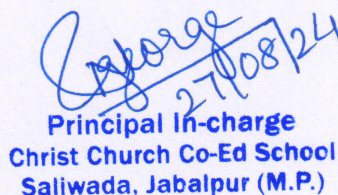 George
27/08/24
Principal In-charge
Christ Church Co-Ed School
Saliwada, Jabalpur (M.P.)